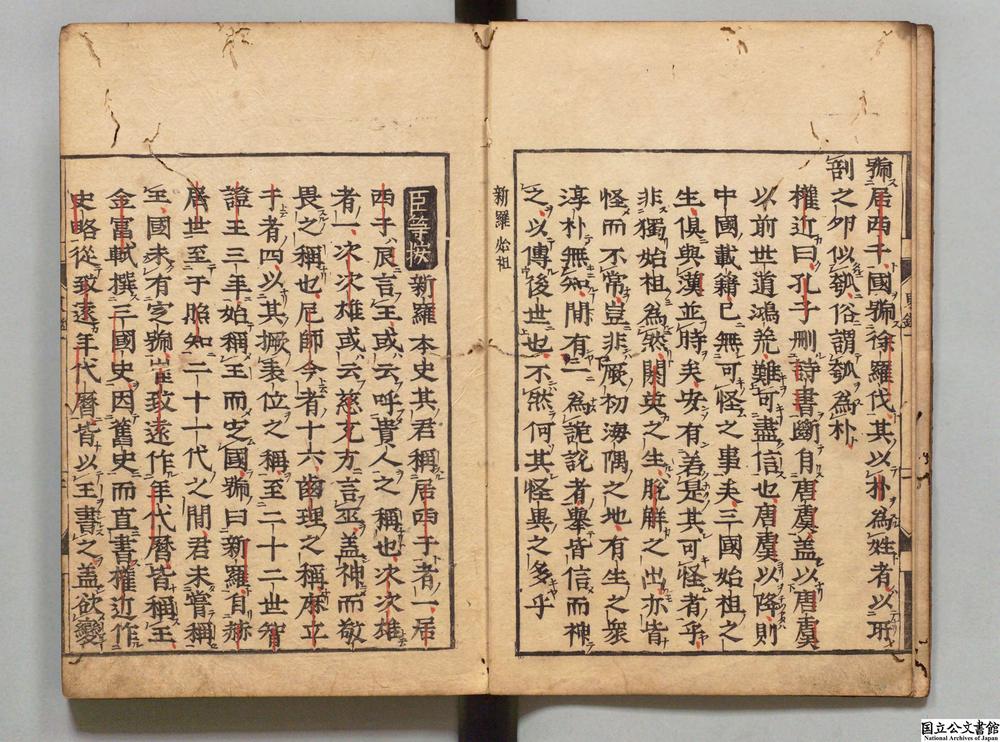 號居西干國號徐羅伐其以朴為姓者以所
剖之卵似瓠俗謂瓠為朴
權近曰孔子刪詩書斷自唐虞盖以唐虞
以前世道鴻荒難可盡信也唐虞以降則
中國載籍已無可怪之事矣三國始祖之
生俱與漢並時矣安有若是其可怪者乎
非獨始祖為然閼英之生脫解之出亦皆
怪而不常豈非厥初海隅之地有生之衆
淳朴無知間有一為詭說者擧皆信而神
之以傳後世也不然何其怪異之多乎
新羅 始祖
臣等按新羅本史其君稱居西干者一居
西干辰言王或云呼貴人之稱也次次雄
者一次次雄或云慈充方言巫盖神而敬
畏之稱也尼師今者十六齒理之稱麻立
干者四以其橛表位之稱至二十二世智
證王三年始稱王而史國號曰新羅自赫
居世至于炤知二十一代之間君未嘗稱
王國未有定號崔致遠作年代曆皆稱王
金富軾撰三國史因舊史而直書權近作
史略從致遠年代曆皆以王書之盖欲變
国立公文書館
National Archives of Japan